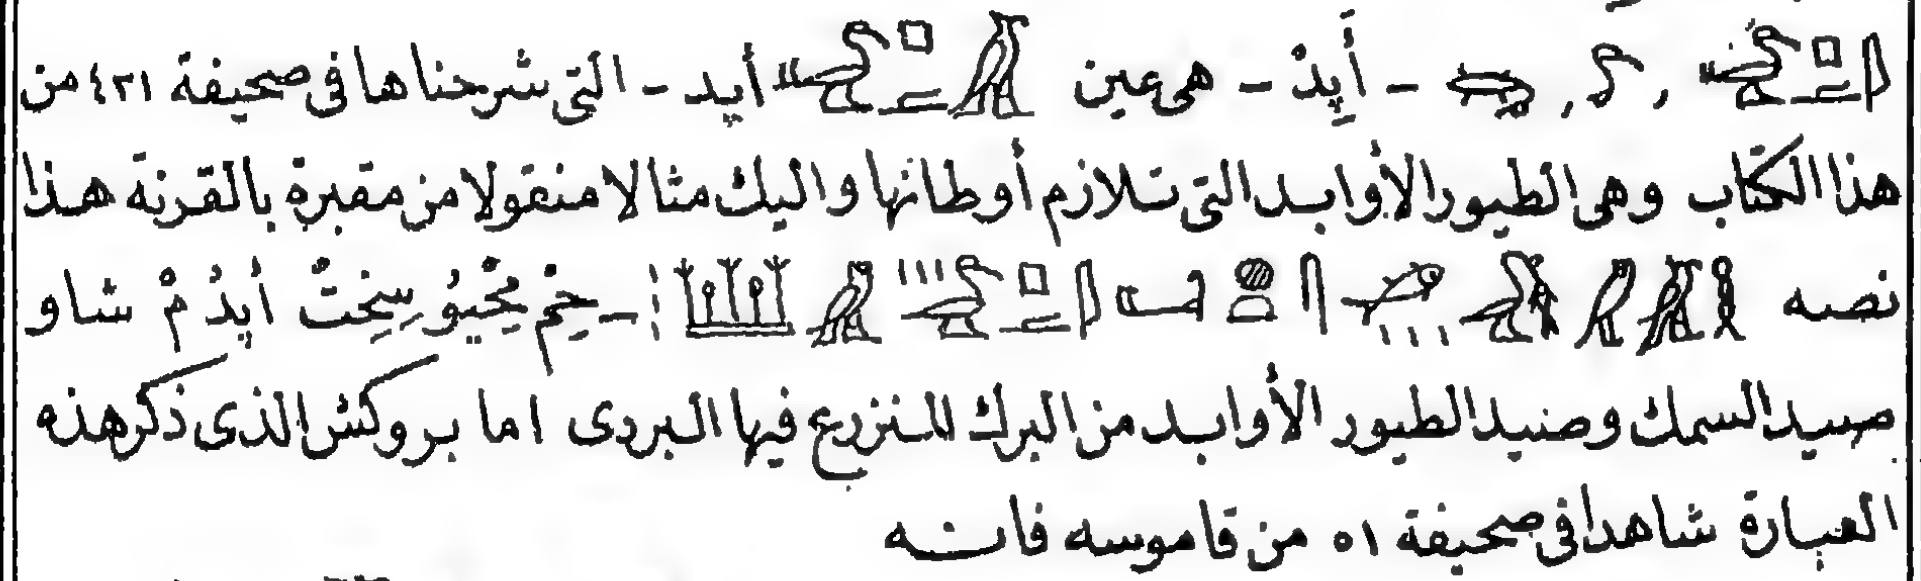 - أَپِدْ - هى عين أپد - التى شرحناها فى صحيفة ٤٢١ من
هذا الكتاب وهى الطيور الأوابد التى تلازم أوطانها واليك مثالا منقولا من مقبرة بالقرنة هذا
نصه - سِخِتْ أپِدُ مْ شاو
صيد السمك وصنيد الطيور الأوابد من البرك المنزرع فيها البردى اما بروكش الذى ذكر هذه
العبارة شاهدا فى صحيفة ٥١ من قاموسه فانه